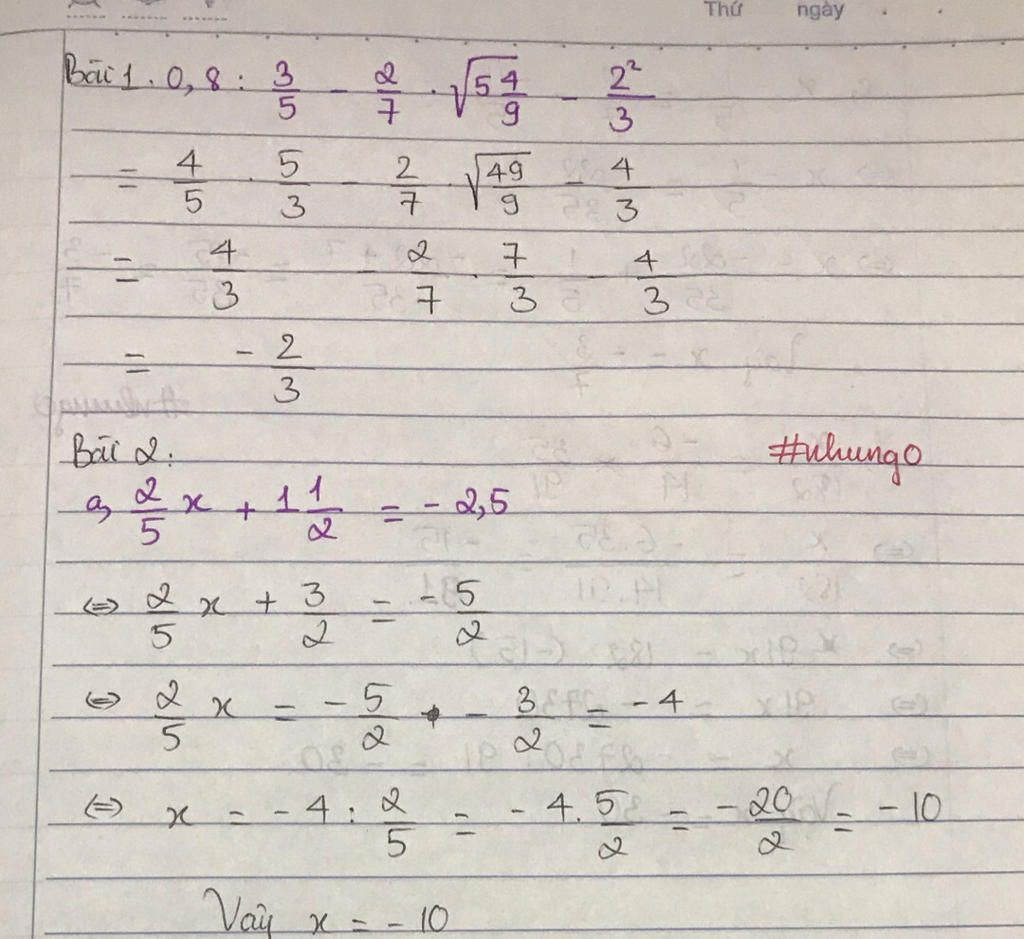 Thứ ngày
Bài 1. 0,8 : 3/5 - 2/7 . √(5 4/9) - 2²/3
= 4/5 . 5/3 - 2/7 . √(49/9) - 4/3
= 4/3 - 2/7 . 7/3 - 4/3
= - 2/3
Bài 2:
#nhung0
a, 2/5 x + 1 1/2 = - 2,5
⇔ 2/5 x + 3/2 = - 5/2
⇔ 2/5 x = - 5/2 - 3/2 = - 4
⇔ x = - 4 : 2/5 = - 4 . 5/2 = - 20/2 = - 10
Vậy x = - 10